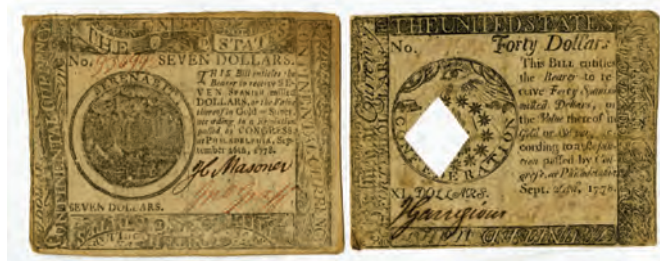 THE STAT
No. 93699 SEVEN DOLLARS.
THIS Bill entitles the
Bearer to receive SE-
VEN SPANISH milled
DOLLARS, or the Value
thereof in Gold or Silver,
according to a Resolution
passed by CONGRESS
at PHILADELPHIA, Sep-
tember 26th, 1778.
SERENABIT
SEVEN DOLLARS.
CONTINENTAL CURRENCY
THE UNITED STATES
No. Forty Dollars
This BILL entitles
the Bearer to re-
ceive Forty Spanish
milled Dollars, or
the Value thereof in
Gold or Silver, ac-
cording to a Resolu-
tion passed by Con-
gress, at Philadelphia
Sept. 26th, 1778.
CONFEDERATION
XL DOLLARS.